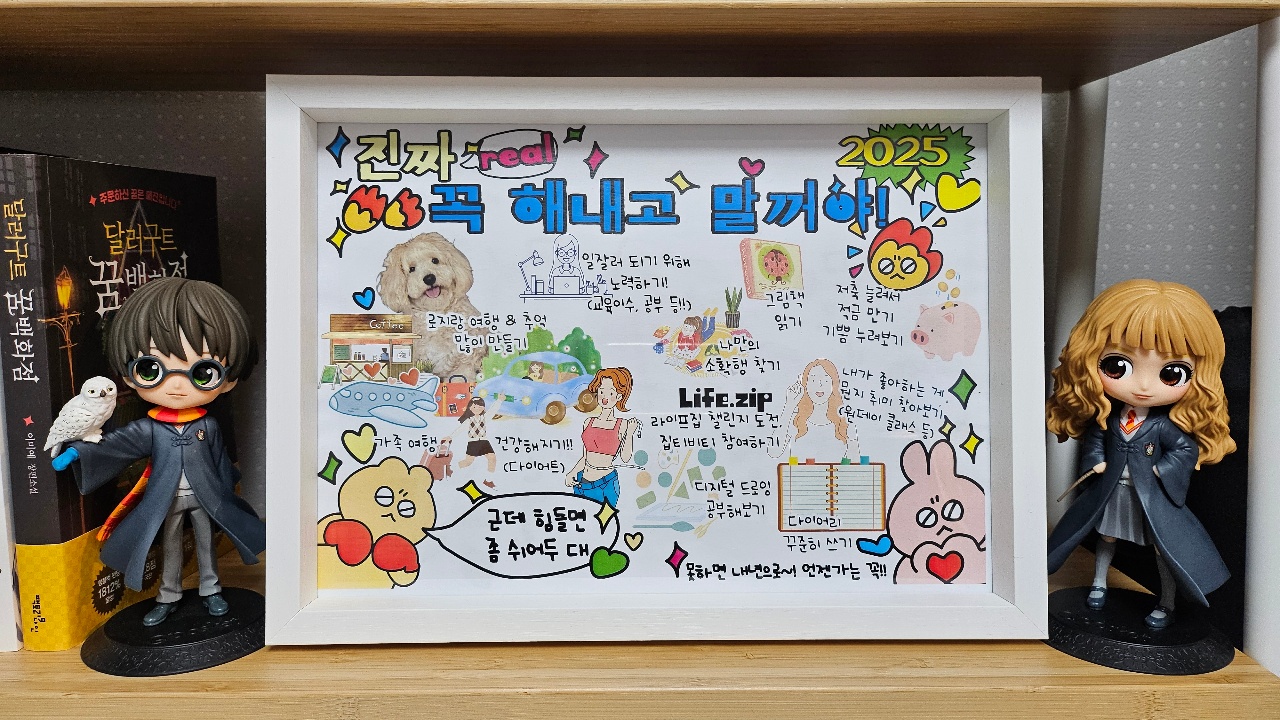 진짜 real
2025
꼭 해내고 말꺼야!
일잘러 되기 위해
노력하기!
(교육이수, 공부 등!!)
그림책
읽기
저축 늘려서
적금 만기
기쁨 누려보기
Coffee
로지랑 여행 & 추억
많이 만들기
나만의
소확행 찾기
가족 여행
건강해지기!!
(다이어트)
Life.zip
라이프집 챌린지 도전,
집티비티 참여하기
내가 좋아하는 게
뭔지 취미 찾아보기
(원데이 클래스 등)
디지털 드로잉
공부해보기
다이어리
꾸준히 쓰기
근데 힘들면
좀 쉬어두 대
못하면 내년으로~! 언젠가는 꼭!!
주문하신 꿈은 매진입니다
달러구트
꿈 백화점
달러구트 꿈 백화점
이미예 장편소설